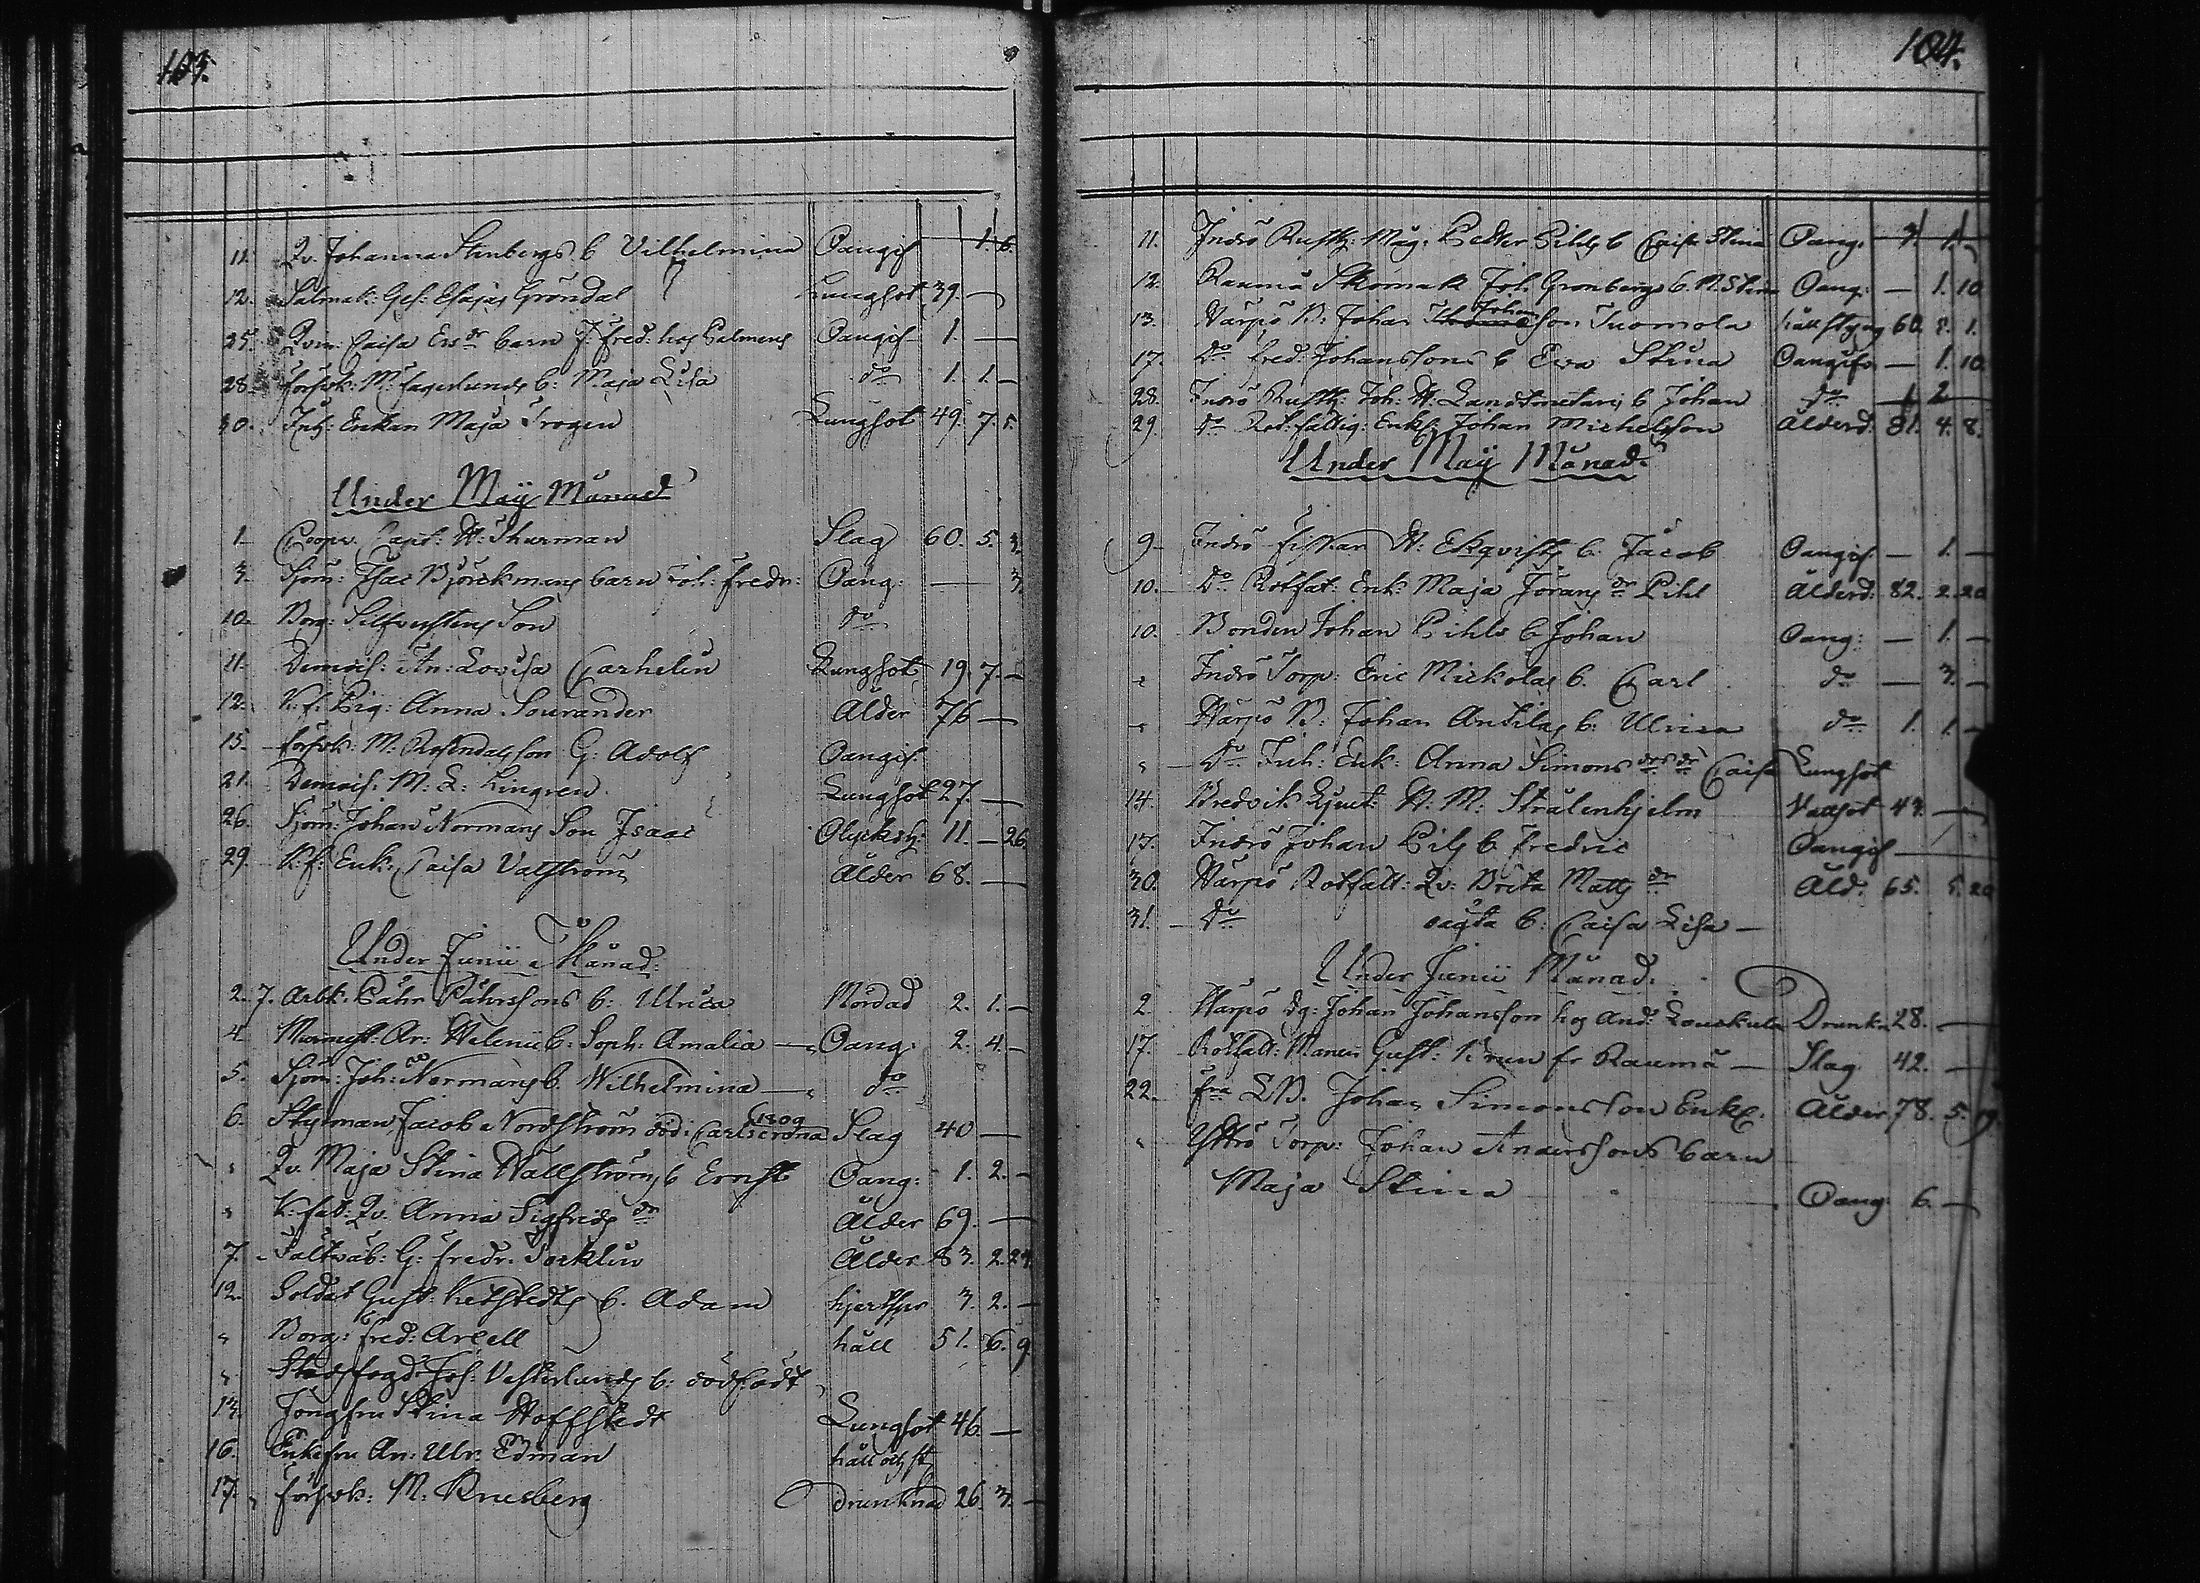 103.
11. Qv. Johanna Stenbergs b Vilhelmina Oangif — 1. 6.
12. Salmak: Ges: Esajas Gröndal Lungsot 39. —
25. Qvin: Caisa Ers dr barn J: Fred: hos Palmens Oangif 1. —
28. Försvk: M: Fagerlunds b: Maja Lisa do 1. 1. —
30. Inh: Enkan Maja Trogen Lungsot 49. 7. 5.
Under Maÿ Månad
1. Coopv. Capt: H: Thurman Slag 60. 5. 3.
3. Sjöm: Isac Björckmans barn Joh: Fredr: Oang: — 3.
10. Borg: Silfverstens Son do
11. Demois: An: Lovisa Carhelin Lungsot 19. 7. —
12. K. f. Pig: Anna Sourander Ålder 76 —
15. Försvk: M: Rosendals son G: Adolf Oangif.
21. Demois: M: L: Lingren Lungsot 27. —
26. Sjöm: Johan Normans Son Isaac Olycksh: 11. — 26
29. K: f: Enk: Caisa Valström Ålder 68. —
Under Junii Månad.
2. 7. Arbk. Påhr Påhrssons b: Ulrica Mördad 2. 1. —
4. Murmest: An: Helenii b: Soph: Amalia — Oang: 2. 4. —
5. Sjöm: Joh: Normans b. Wilhelmina — do
6. Styrman Jacob Nordström död i Carlscrona 1809 Slag 40 —
" Qv. Maja Stina Wallströms b Ernst Oang: 1. 2. —
" K: fat: Qv. Anna Sigfrids dr Ålder 69. —
7. Fältväb: G: Fredr. Tocklin Ålder 83. 2. 24
12. Soldat Gust: Ketstedts b. Adam hjertspr 3. 2. —
" Borg: Fred: Arcell håll 51. 6. 9.
" Stadsfogd: Joh: Vesterlunds b: dödfödt
13. Jungfru Stina Hoffstedt Lungsot 46. —
16. Enkefru An: Ulr: Edman håll och st
17. Försvk: M. Knesberg drunknad 26. 3. —
104.
11. Indrö Rusth: Måg: Petter Pihls b Caisa Stina Oang. 3 1. —
12. Raumå Skomak Joh: Grönbergs b. M. Stina Oang: — 1. 10
13. Varpö B: Johan Johansson Tuomola håll styng 60. 8. 1.
17. do Fred: Johanssons b Eva Stina Oangifv — 1. 10.
28. Indrö Rusth: Joh: H: Landtmetaris b Johan do 1 2
29. do Rotfattig: Enkl: Johan Michelsson Ålderd: 81. 4. 8.
Under Maÿ Månad.
9. Indrö Fiskar H: Ekqvists b: Jacob Oangif — 1. —
10. do Rotfat: Enk: Maja Jörans dr Pihl Ålderd: 82. 2. 20
10. Bonden Johan Pihls b Johan Oang: — 1. —
" Indrö Torp: Eric Mickolas b. Carl do — 3. —
" Varpö B: Johan Antilas b: Ulrica do 1. 1. —
" do Inh: Enk: Anna Simons drs dr Caisa Lungsot
14. Bredvik H. M: Strålenhjelm Vattsot 43. —
15. Indrö Johan Pils b Fredric Oangif —
30. Varpö Rotfatt: Qv: Brita Matts dr Åld: 65. 5. 20
31. do sagda b: Caisa Lisa —
Under Junii Månad.
2. Varpö dg: Johan Johansson hos And: Louskula Drunkn 28. —
17. Rotfatt: Gust: Brun fr Raumå — Slag 42. —
22. fra S.B. Johan Simonsson Enkl. Ålder 78. 5. 19
" Yttrö Torp: Johan Anderssons barn
Maja Stina Oang 6. —